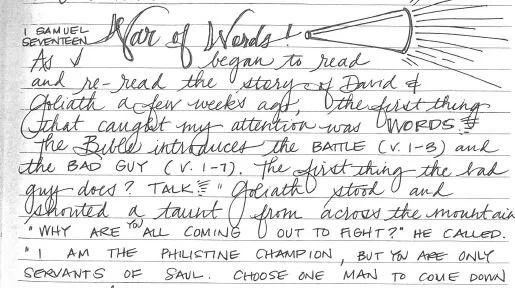 1 SAMUEL
SEVENTEEN
War of Words!
As I began to read
and re-read the story of David &
Goliath a few weeks ago, the first thing
that caught my attention was WORDS.
The Bible introduces the BATTLE (V. 1-3) and
the BAD GUY (V. 1-7). The first thing the bad
guy does? TALK "Goliath stood and
shouted a taunt from across the mountain
"WHY ARE YOU ALL COMING OUT TO FIGHT?" HE CALLED.
"I AM THE PHILISTINE CHAMPION, BUT YOU ARE ONLY
SERVANTS OF SAUL. CHOOSE ONE MAN TO COME DOWN